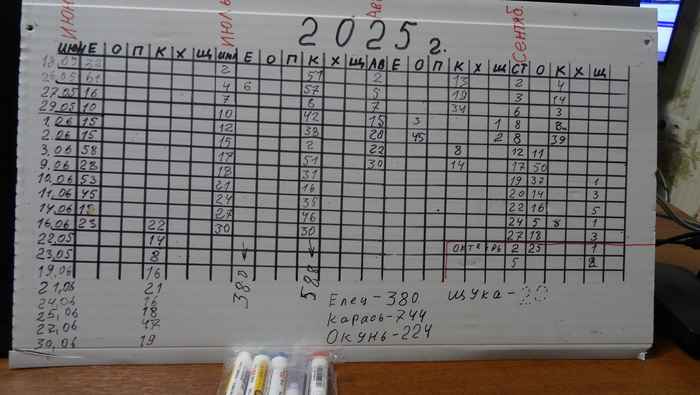 2025г.
июнь июль Ав Сентяб.
ИЮН Е О П К Х Щ ИЮЛ Е О П К Х Щ АВ Е О П К Х Щ СТ О К Х Щ
18.05 2 51 2 13 2 4
26.05 61 4 6 57 5 19 3 14
27.05 16 7 6 7 34 6 3
29.05 10 10 42 15 3 1 8
1.06 15 12 38 20 45 2 8 39
2.06 15 15 2 22 8 12 11
3.06 58 17 51 30 14 17 50
9.06 28 18 31 19 37 1
10.06 53 21 16 20 14 3
11.06 45 24 35 22 16 5
14.06 27 46 24 5 8 1
16.06 23 22 30 30 27 18 3
22.05 14 ОКТЯбРЬ 2 25 1
23.05 8 5 2
19.06 16
21.06 21
24.06 16
25.06 18
27.06 47
30.06 19
380 ←
588 ←
Елец-380 щука-20
Карась-744
Окунь-224